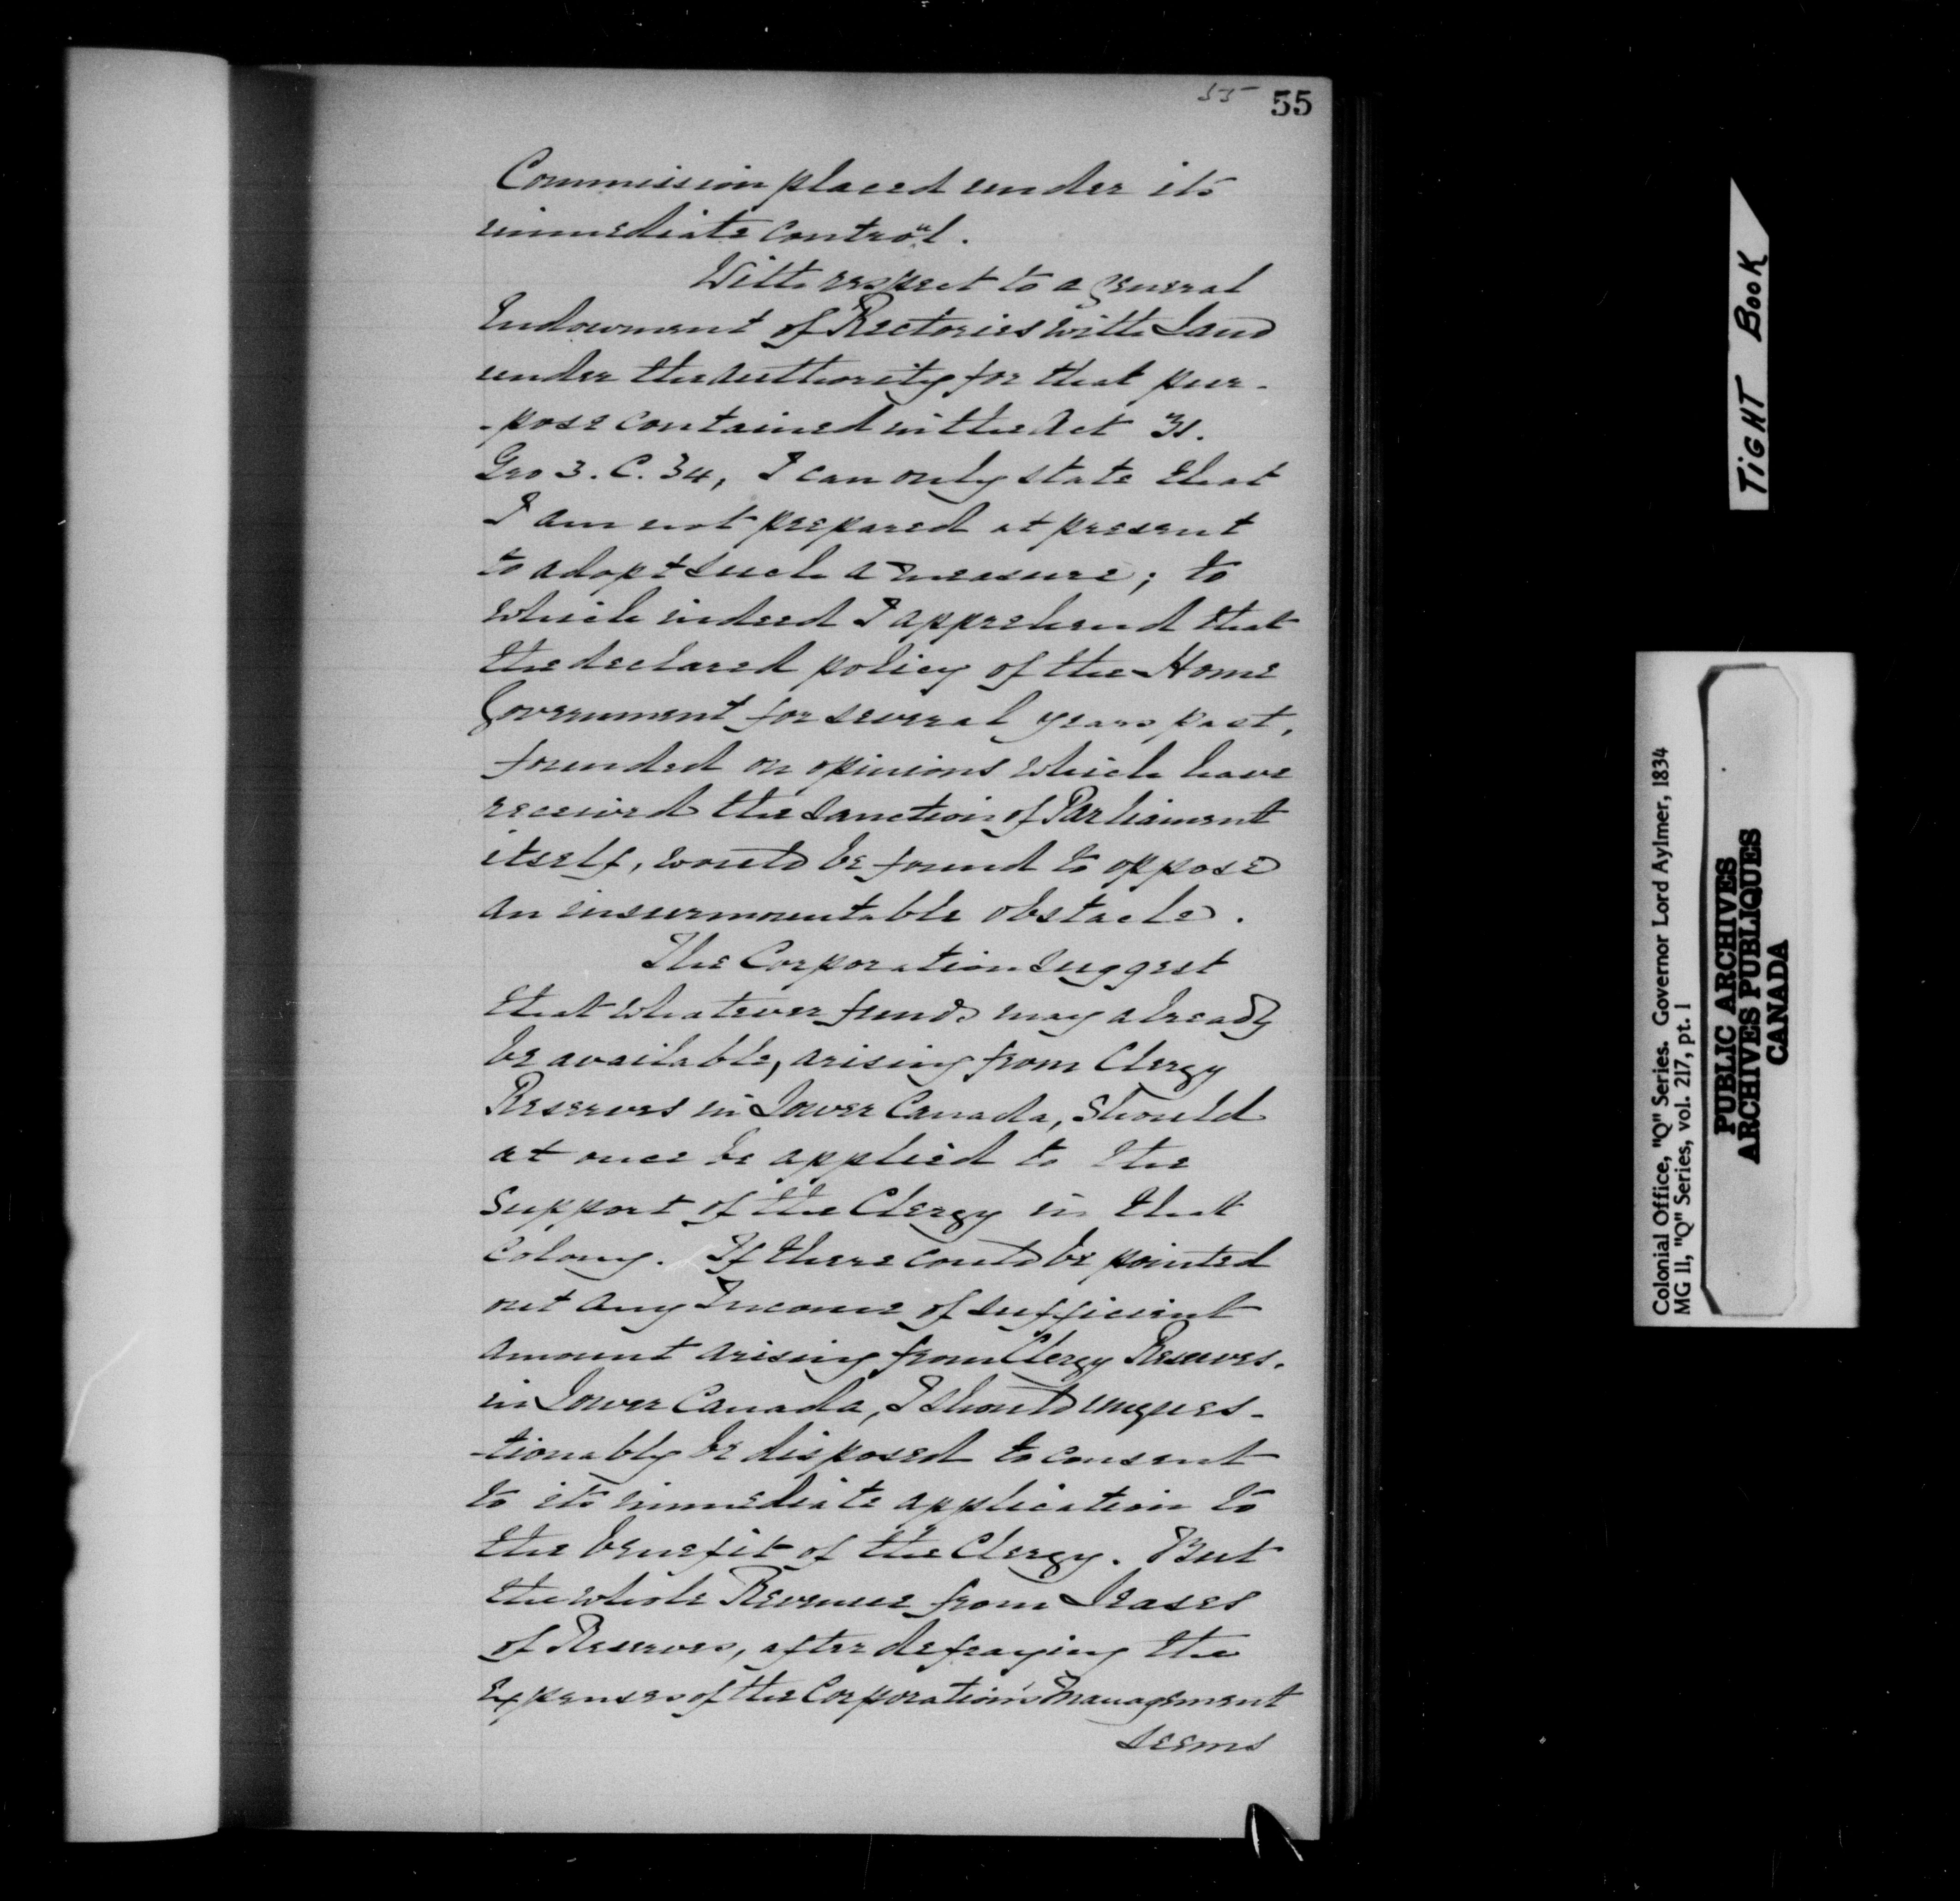 55 55
Commission placed under its
immediate controul.
With respect to a General
Endowment of Rectories with Land
under the authority for that pur-
-pose contained in the Act 31.
Geo 3. C. 34, I can only state that
I am not prepared at present
to adopt such a measure; to
which indeed I apprehend that
the declared policy of the Home
Government for several years past,
founded on opinions which have
received the sanction of Parliament
itself, would be found to oppose
an insurmountable obstacle.
The Corporation suggest
that whatever funds may already
be available, arising from Clergy
Reserves in Lower Canada, should
at once be applied to the
support of the Clergy in that
Colony. If there could be pointed
out any Income of sufficient
amount arising from Clergy Reserves.
in Lower Canada, I should unques-
-tionably be disposed to consent
to its immediate application to
the benefit of the Clergy. But
the whole Revenue from Leases
of Reserves, after defraying the
expenses of the Corporation's management
seems
TIGHT BOOK
Colonial Office, "Q" Series. Governor Lord Aylmer, 1834
MG 11, "Q" Series, vol. 217, pt. 1
PUBLIC ARCHIVES
ARCHIVES PUBLIQUES
CANADA